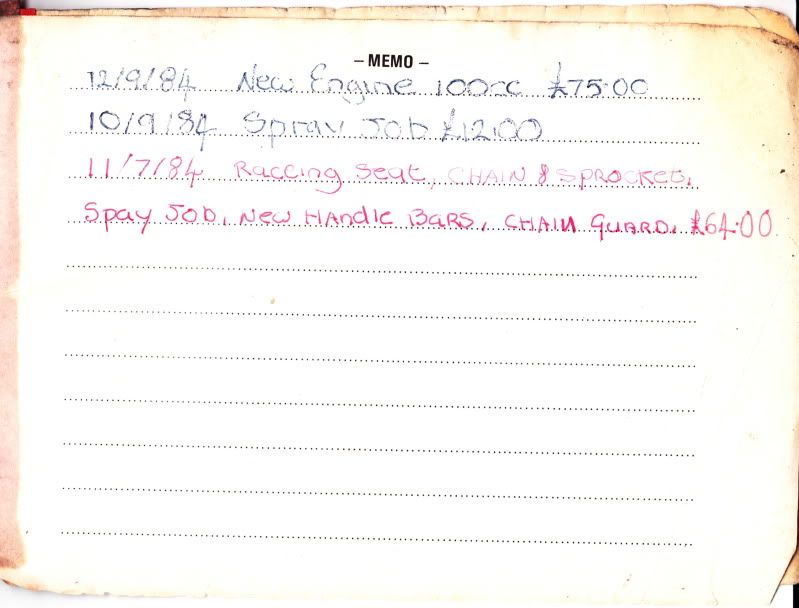 – MEMO –
12/9/84 New Engine 100cc £75.00
10/9/84 Spray Job £12.00
11/7/84 Raccing Seat, CHAIN & SPROCKET,
Spay JOB, NEW HANdle BARS, CHAIN GUARD. £64.00